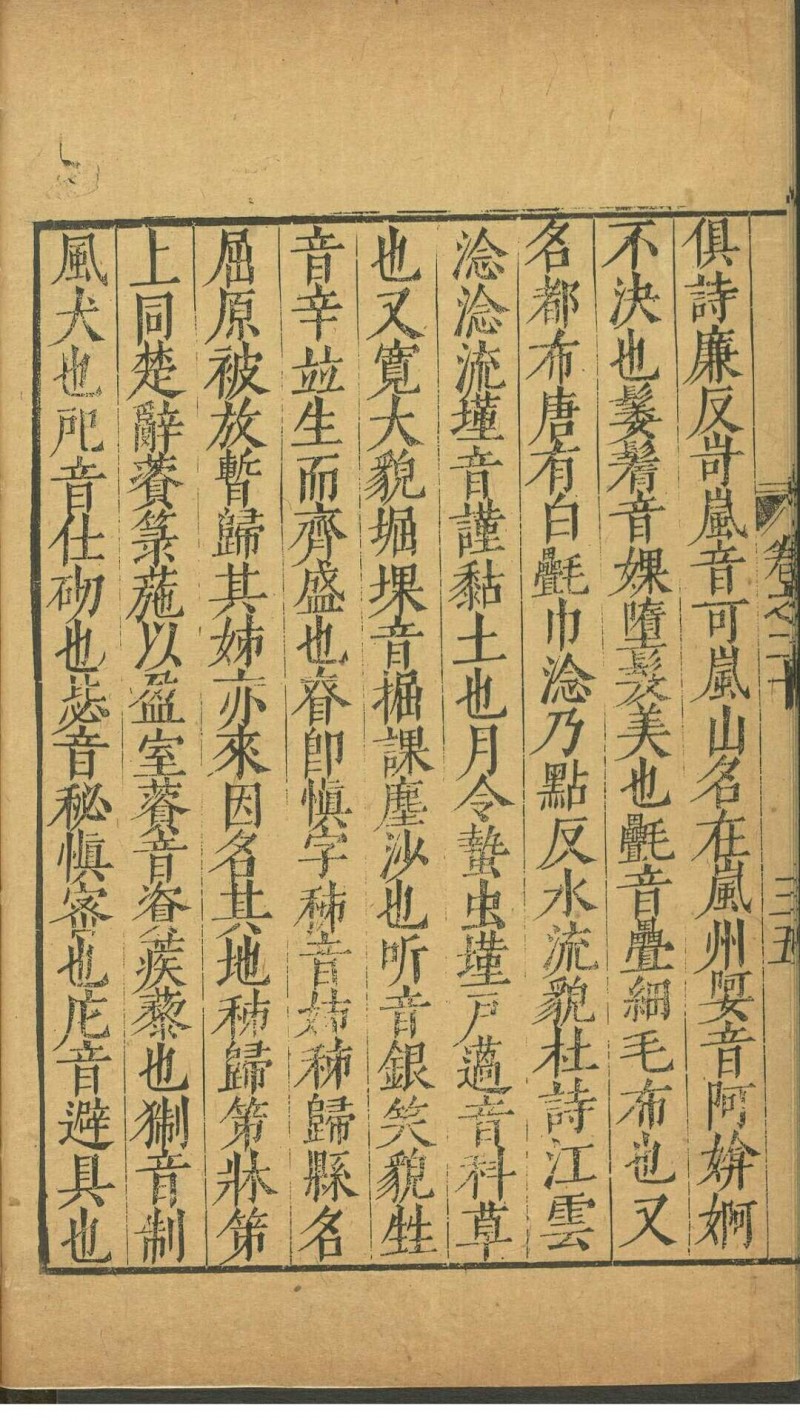 俱詩廉反岢嵐音可嵐山名在嵐州娿音阿媕婀
不決也鬘鬌音婐墮髮美也氎音疊細毛布也又
名都布唐有白氎巾淰乃點反水流貌杜詩江雲
淰淰流墐音謹黏土也月令蟄虫墐戸薖音科草
也又寬大貌堀堁音掘課塵沙也听音銀笑貌甡
音辛並生而齊盛也昚即愼字秭音姊秭歸縣名
屈原被放暫歸其姊亦來因名其地秭歸笫牀笫
上同楚辭薋菉葹以盈室薋音資蒺藜也猘音制
風犬也戺音仕砌也毖音秘愼密也庀音避具也
卷之二十
三五